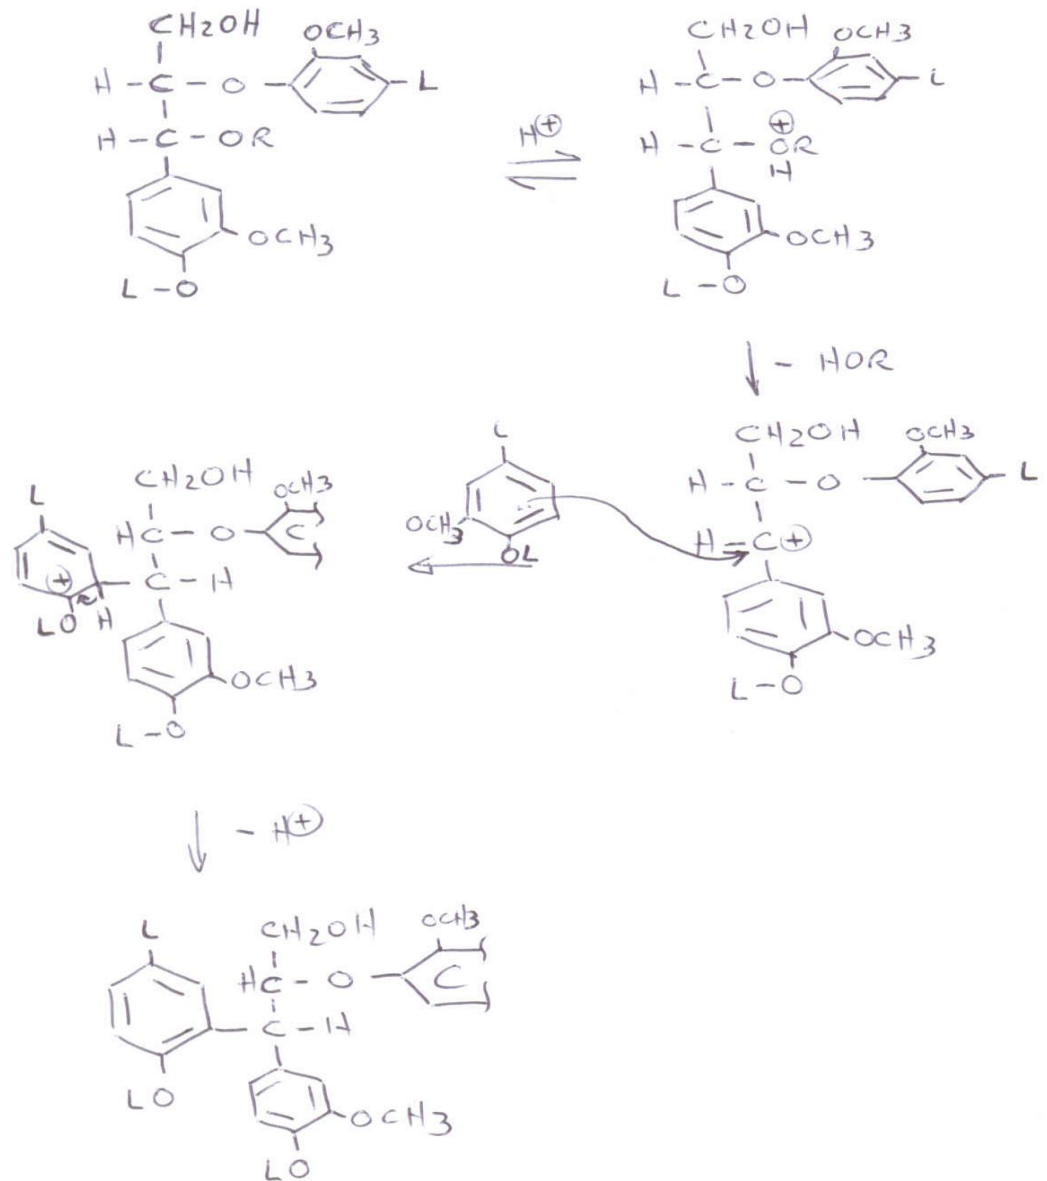 CH2OH OCH3
H - C - O - L
H - C - OR
OCH3
L - O
H⊕
CH2OH OCH3
H - C - O - L
H - C - ⊕OR
H
OCH3
L - O
- HOR
CH2OH OCH3
H - C - O - L
H - C ⊕
OCH3
L - O
L
OCH3
OL
CH2OH OCH3
L
HC - O - C
⊕ - C - H
LO H
OCH3
L - O
- H⊕
L CH2OH OCH3
HC - O - C
- C - H
LO
OCH3
LO